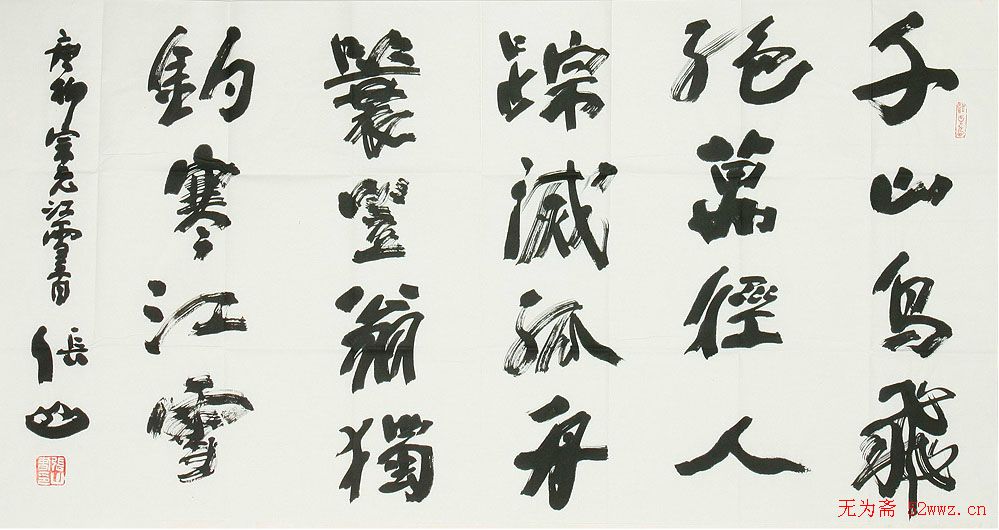 千山鳥飛
絕萬徑人
踪滅孤舟
蓑笠翁獨
釣寒江雪
唐柳宗元江雪一首
張山
无为斋 52wwz.cn